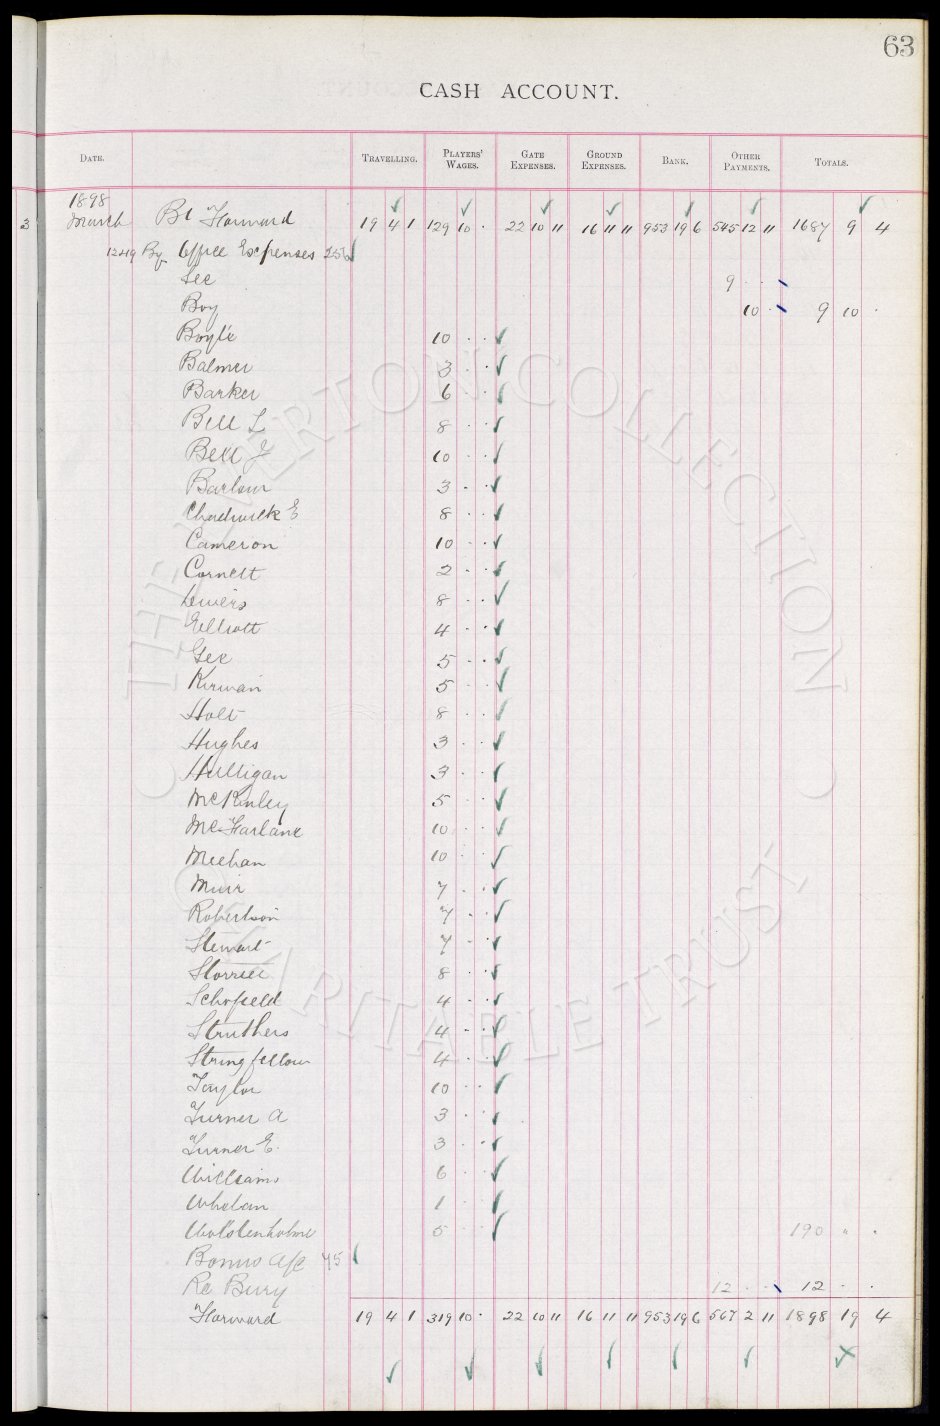 63
CASH ACCOUNT.
DATE. TRAVELLING. PLAYERS' WAGES. GATE EXPENSES. GROUND EXPENSES. BANK. OTHER PAYMENTS. TOTALS.
1898
3 March Bt Forward 19 4 1 129 10 · 22 10 11 16 11 11 953 19 6 545 12 11 1687 9 4
1249 By Office Expenses 256
Lee 9 · ·
Boy 10 · 9 10 ·
Boyle 10 · ·
Balmer 3 · ·
Barker 6 · ·
Bell L 8 · ·
Bell J 10 · ·
Barlow 3 · ·
Chadwick E 8 · ·
Cameron 10 · ·
Cornett 2 · ·
Divers 8 · ·
Elliott 4 · ·
Gee 5 · ·
Kirwan 5 · ·
Holt 8 · ·
Hughes 3 · ·
Hulligan 3 · ·
McKinley 5 · ·
McFarlane 10 · ·
Meehan 10 · ·
Muir 7 · ·
Robertson 7 · ·
Stewart 7 · ·
Storrier 8 · ·
Schofield 4 · ·
Struthers 4 · ·
Stringfellow 4 · ·
Taylor 10 · ·
Turner A 3 · ·
Turner E. 3 · ·
Williams 6 · ·
Whelan 1 · ·
Wolstenholme 5 · · 190 " ·
Bonus a/c 45
Re Bury 12 · · 12 · ·
Forward 19 4 1 319 10 · 22 10 11 16 11 11 953 19 6 567 2 11 1898 19 4
THE EVERTON COLLECTION
CHARITABLE TRUST